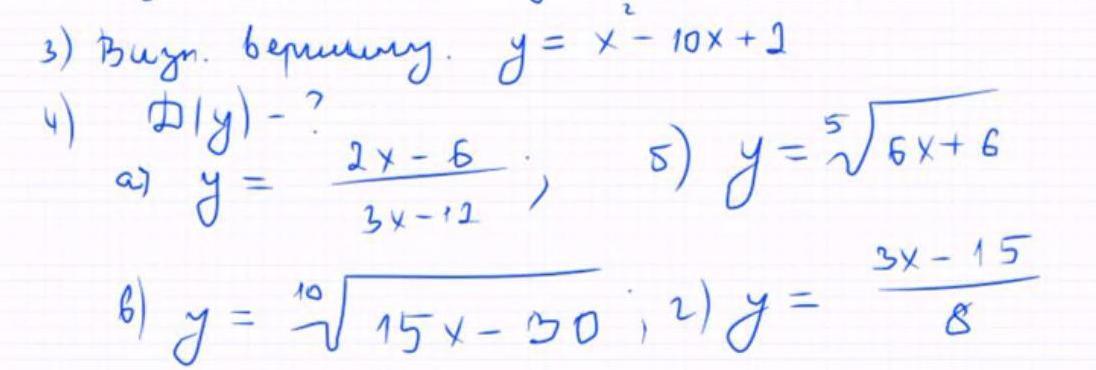 3) Визн. вершину. y = x² - 10x + 2
4) D(y) - ?
a) y = (2x - 6)/(3x - 12); б) y = ⁵√(6x + 6)
в) y = ¹⁰√(15x - 30); г) y = (3x - 15)/8